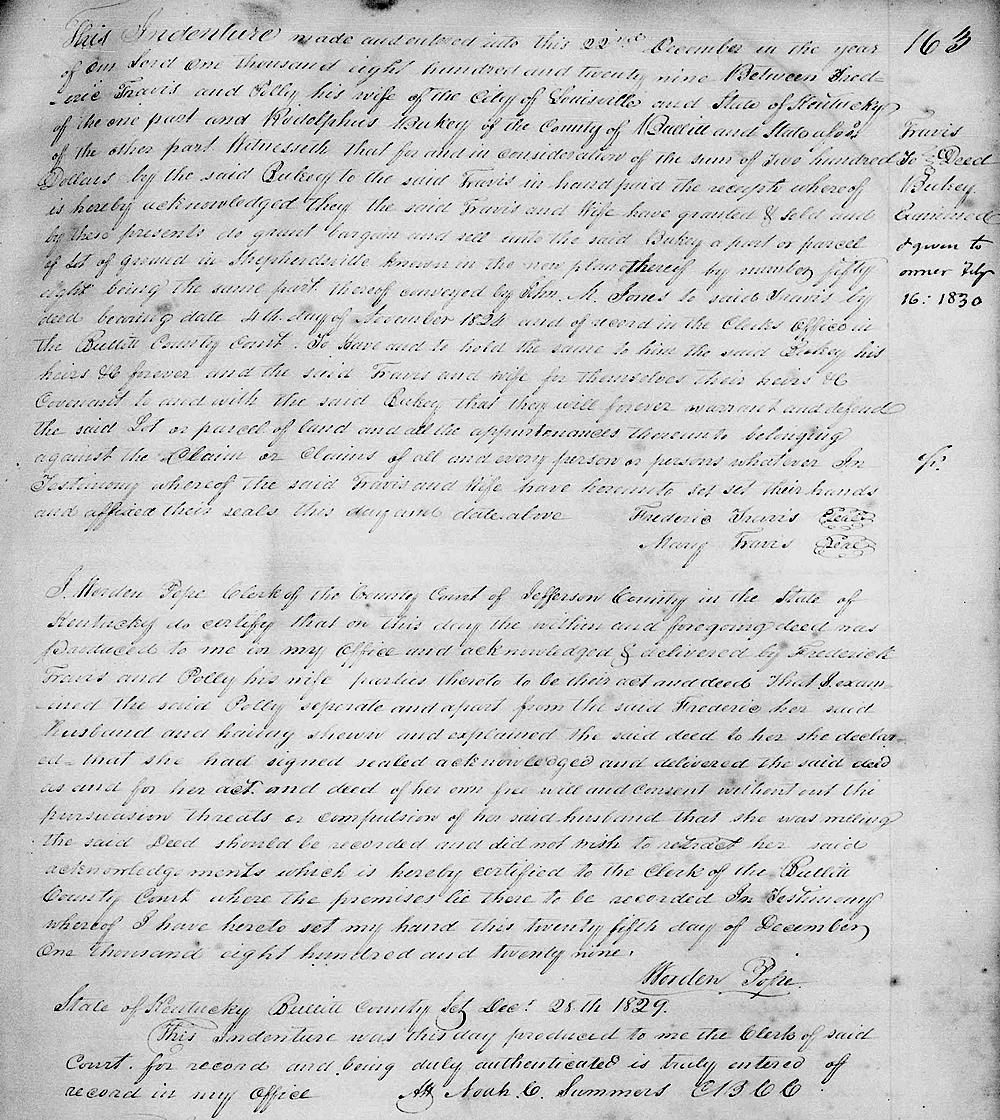 163
This Indenture made and entered into this 22nd December in the year
of our Lord one thousand eight hundred and twenty nine Between Fred-
-eric Travis and Polly his wife of the City of Louisville and State of Kentucky
of the one part and Rodolphus Bukey of the County of Bullitt and State afors
of the other part Witnesseth that for and in consideration of the sum of two hundred
Dollars by the said Bukey to the said Travis in hand paid the receipt whereof
is hereby acknowledged they the said Travis and Wife have granted & sold and
by these presents do grant bargain and sell unto the said Bukey a part or parcel
of Lot of ground in Shepherdsville known in the new plan thereof by number fifty
eight being the same part thereof conveyed by John M. Jones to said Travis by
deed bearing date 4th day of November 1824 and of record in the Clerks Office in
the Bullitt County Court. To Have and to hold the same to him the said Bukey his
heirs &c forever and the said Travis and wife for themselves their heirs &c
Covenant to and with the said Bukey that they will forever warrant and defend
the said Lot or parcel of land and all the appurtenances thereunto belonging
against the Claim or Claims of all and every person or persons whatever In
Testimony whereof the said Travis and Wife have hereunto set set their hands
and affixed their seals this day and date above
Frederic Travis Seal
Mary Travis Seal
Travis
To Deed
Bukey
Examined
& given to
owner Feby
16: 1830
I Worden Pope Clerk of the County Court of Jefferson County in the State of
Kentucky do certify that on this day the within and foregoing deed was
produced to me in my Office and acknowledged & delivered by Frederick
Travis and Polly his wife parties thereto to be their act and deed That I exam-
-ined the said Polly seperate and apart from the said Frederic her said
Husband and having shewn and explained the said deed to her she declar-
ed that she had signed sealed acknowledged and delivered the said deed
as and for her act. and deed of her own free will and consent without the
persuasion threats or compulsion of her said husband that she was willing
the said Deed should be recorded and did not wish to retract her said
acknowledgements which is hereby certified to the Clerk of the Bullitt
County Court where the premises lie there to be recorded In Testimony
whereof I have hereto set my hand this twenty fifth day of December
One thousand eight hundred and twenty nine.
Worden Pope.
State of Kentucky Bullitt County Sct Decr 28th 1829.
This Indenture was this day produced to me the Clerk of said
Court. for record and being duly authenticated is truly entered of
record in my Office Att Noah C. Summers CBCC